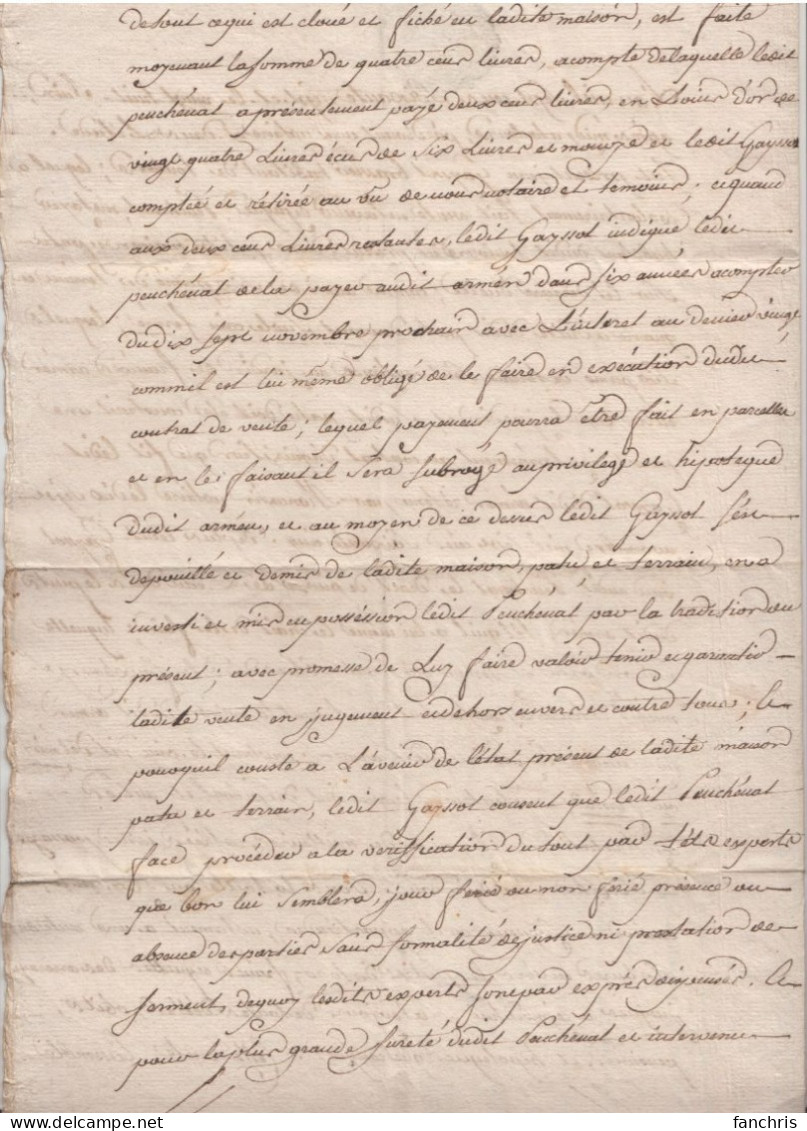 de tout ce qui est cloué et fiché en ladite maison, est faite
moyenant la somme de quatre cens livres, a compte de laquelle ledit
peuchénat a présentement payé deux cens livres, en Louis d'or de
vingt quatre Livres écus de six Livres et monoye et ledit Gayssot
comptée et rétirée au vu de nous notaire et temoins; et quand
aux deux cens Livres restantes, ledit Gayssot indique ledit
peuchénat de la payer audit armén dans six années a compter
du dix sept novembre prochain avec L'intéret au denier vingt
comm'il est lui même obligé de le faire en exécution dudit
contrat de vente; lequel payement pourra être fait en parcelles
et en le faisant il sera subrogé au privilege et hipoteque
dudit armén, et au moyen de ce dessus ledit Gayssot s'est
depouillé et demis de ladite maison, patu et terrain, en a
investi et mis en posséssion ledit Peuchénat par la tradition du
présent; avec promesse de Luy faire valoir tenir et garantir
ladite vente en jugement et dehors envers et contre tous; et
pour qu'il conste a L'avenir de l'état présent de ladite maison
patu et terrain, ledit Gayssot consent que ledit Peuchénat
face procéder a la vériffication du tout par téls experts
que bon lui semblera, jour ferié ou non ferié présence ou
absence des parties sans formalité de justice ni prestation de
serment, de quoy lesdits experts sont par exprés dispensés. Et
pour la plus grande sureté dudit Peuchénat est intervenu
fanchris